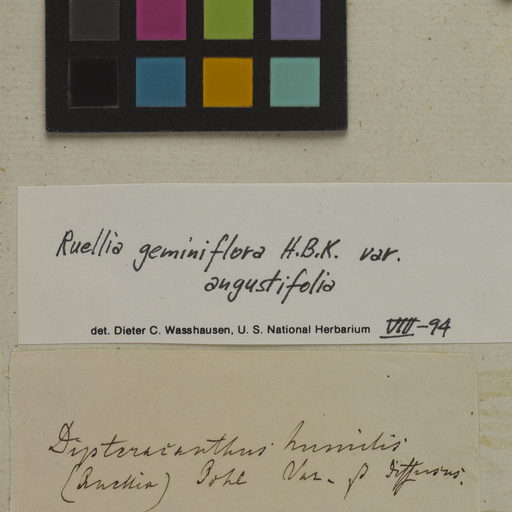 Ruellia geminiflora H.B.K. var.
angustifolia
det. Dieter C. Wasshausen, U. S. National Herbarium VIII-94
Dipteracanthus humilis
(Ruellia) Pohl Var. β diffusus.